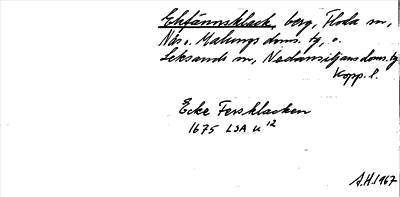 Ekfännsklack, berg, Floda sn,
Nås o. Malungs doms. tg, o.
Leksands sn, Nedansiljans doms. tg
Kopp. l.
Ecke Fersklacken
1675 LSA U 12
A.H. 1967